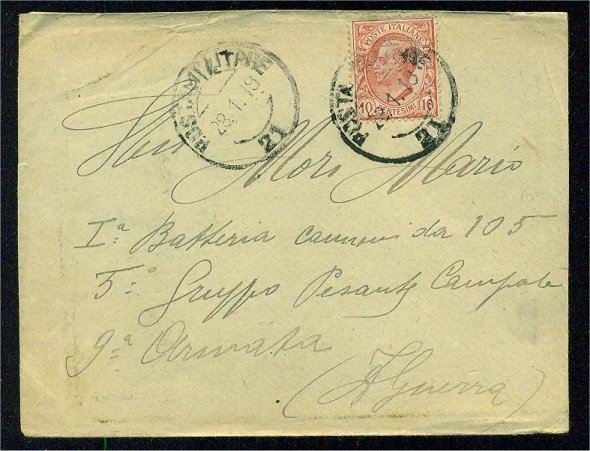 POSTA MILITARE
28.1.18
21
POSTE ITALIANE
10 CENTESIMI 10
POSTA
21
Mori Mario
Iª Batteria cannoni da 105
5.° Gruppo Pesante Campale
9ª Armata
(Z. Guerra)